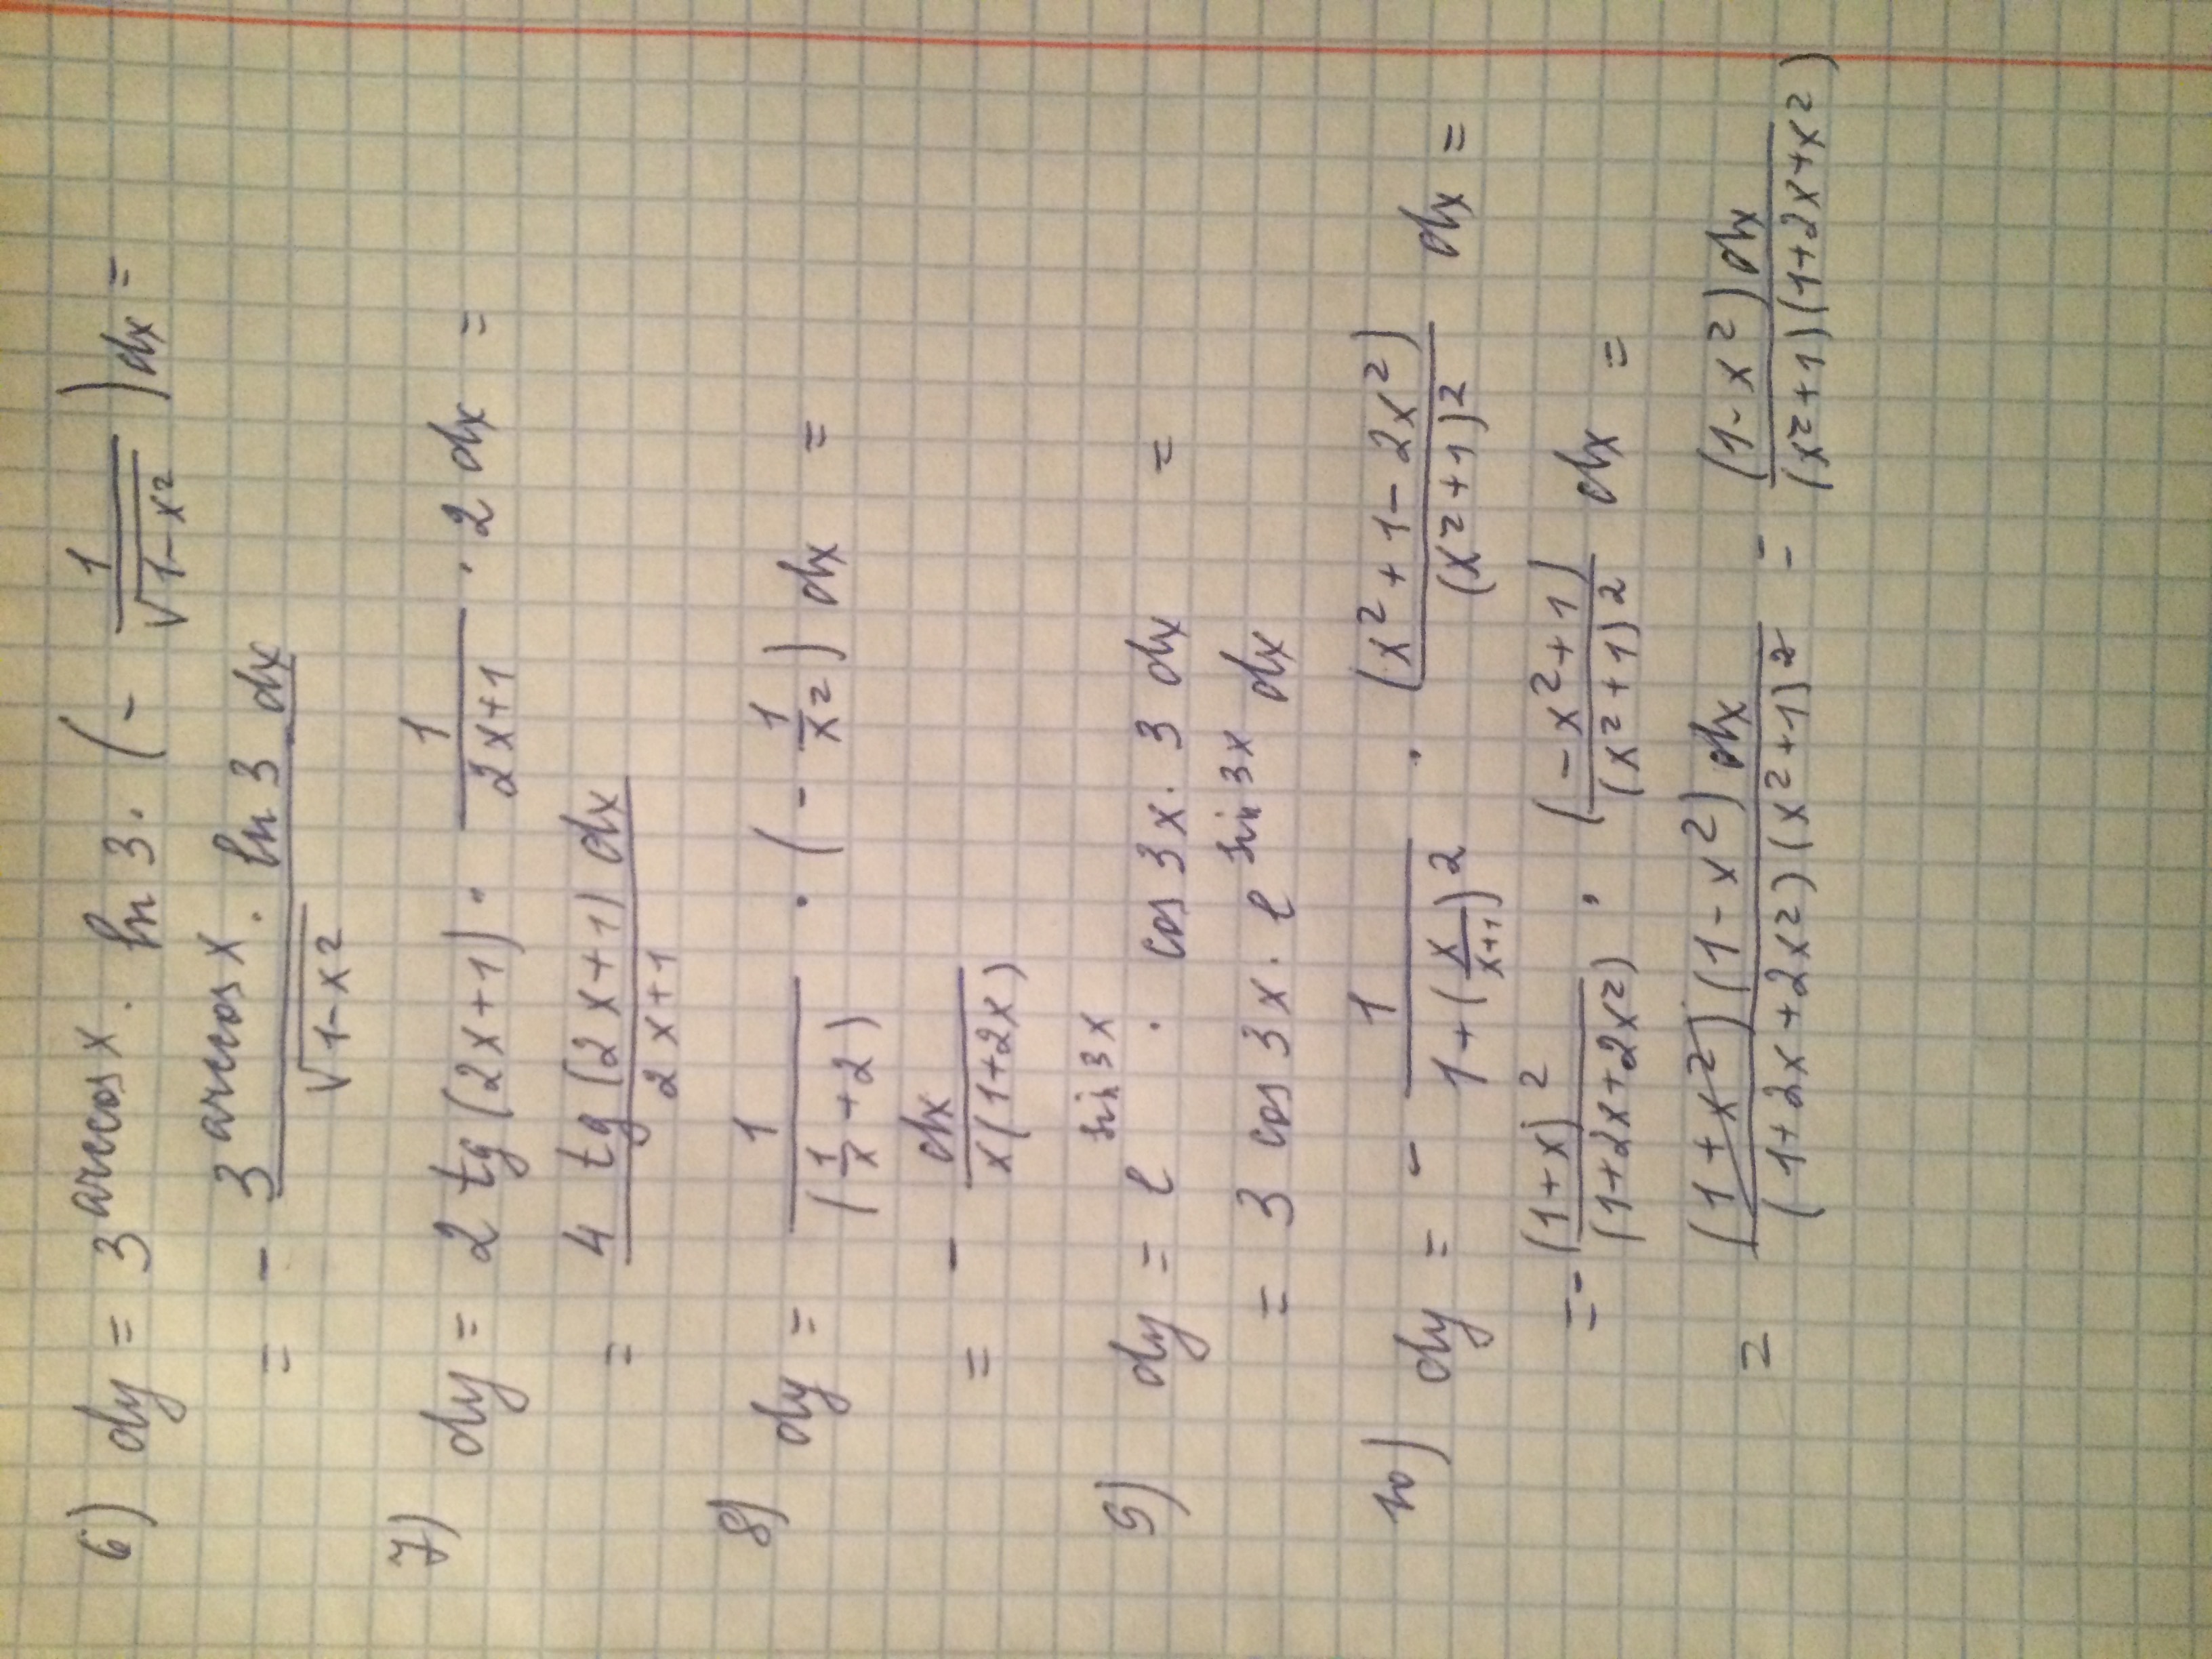 6) dy = 3^(arccos x) · ln 3 · (- 1/√(1-x²)) dx =
= - (3^(arccos x) · ln 3 dx)/√(1-x²)
7) dy = 2 tg (2x+1) · 1/(2x+1) · 2 dx =
= (4 tg (2x+1) dx)/(2x+1)
8) dy = 1/(1/x + 2) · (- 1/x²) dx =
= - dx/(x(1+2x))
9) dy = e^(sin 3x) · cos 3x · 3 dx =
= 3 cos 3x · e^(sin 3x) dx
10) dy = - 1/(1+(x/(x+1))²) · (x²+1-2x²)/(x²+1)² dx =
= - (1+x)²/(1+2x+2x²) · (-x²+1)/(x²+1)² dx =
= ((1+x²)(1-x²) dx)/((1+2x+2x²)(x²+1)²) = ((1-x²) dx)/((x²+1)(1+2x+x²))